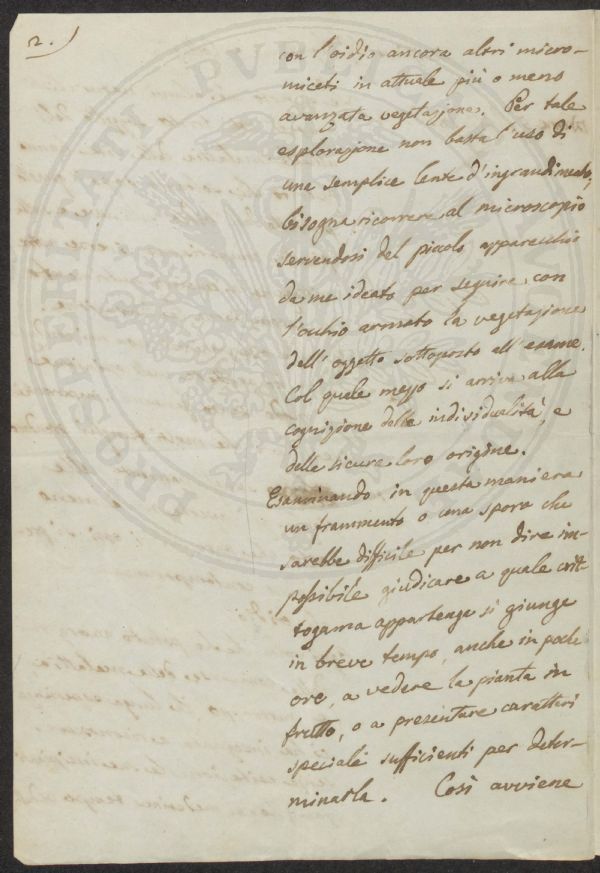 2.
con l'oidio ancora altri micro-
miceti in attuale più o meno
avanzata vegetazione. Per tale
esplorazione non basta l'uso di
una semplice lente d'ingrandimento,
bisogna ricorrere al microscopio
servendosi del piccolo apparecchio
da me ideato per seguire con
l'occhio armato la vegetazione
dell'oggetto sottoposto all'esame.
Col quale mezzo si arriva alla
cognizione delle individualità, e
delle sicure loro origine.
Esaminando in questa maniera
un frammento o una spora che
sarebbe difficile per non dire im-
possibile giudicare a quale crit-
togama appartenga si giunge
in breve tempo, anche in poche
ore, a vedere la pianta in
frutto, o a presentare caratteri
speciali sufficienti per deter-
minarla. Così avviene
PROSPERITATI PVBLI